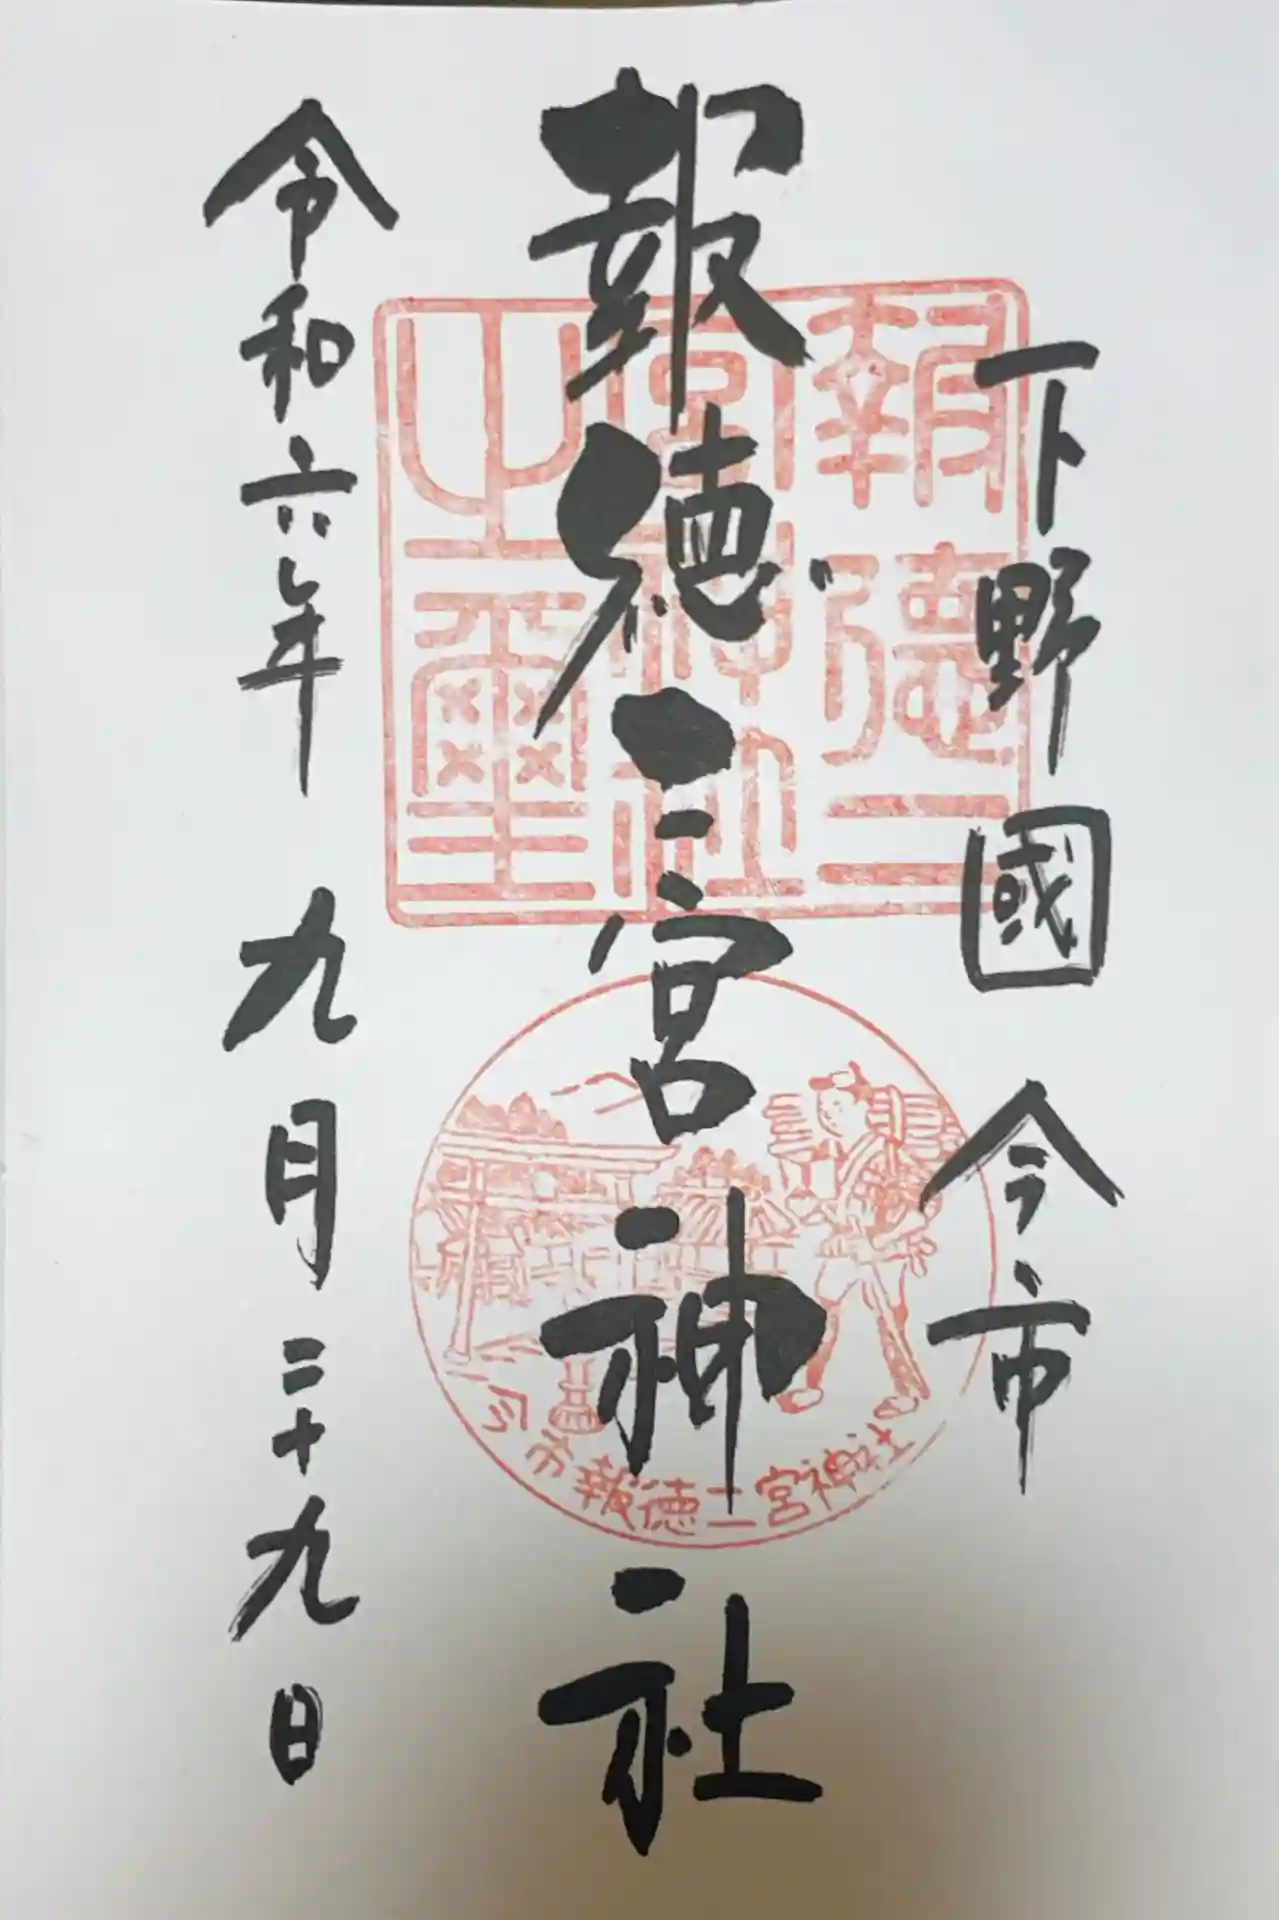 下野國 今市
報徳二宮神社
令和六年 九月二十九日
報徳二
宮神社
之璽
今市報徳二宮神社